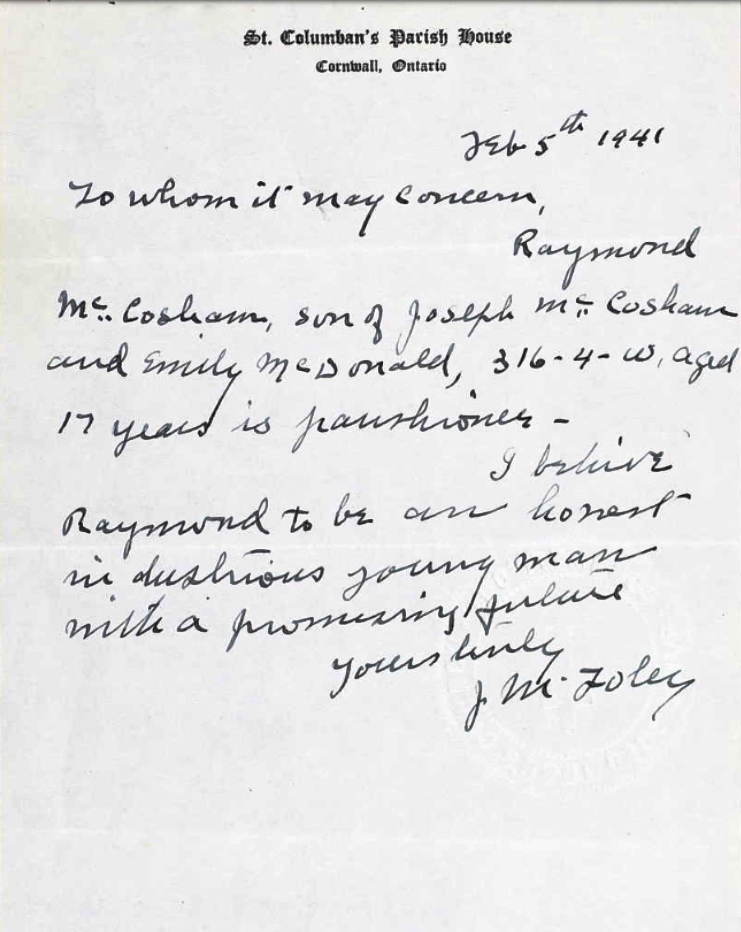 St. Columban's Parish House
Cornwall, Ontario
Feb 5th 1941
To whom it may concern,
Raymond
Mc. Cosham, son of Joseph Mc. Cosham
and Emily McDonald, 316-4-W, aged
17 years is parishioner -
I believe
Raymond to be an honest
industrious young man
with a promising future
Yours truly
J. M. Foley